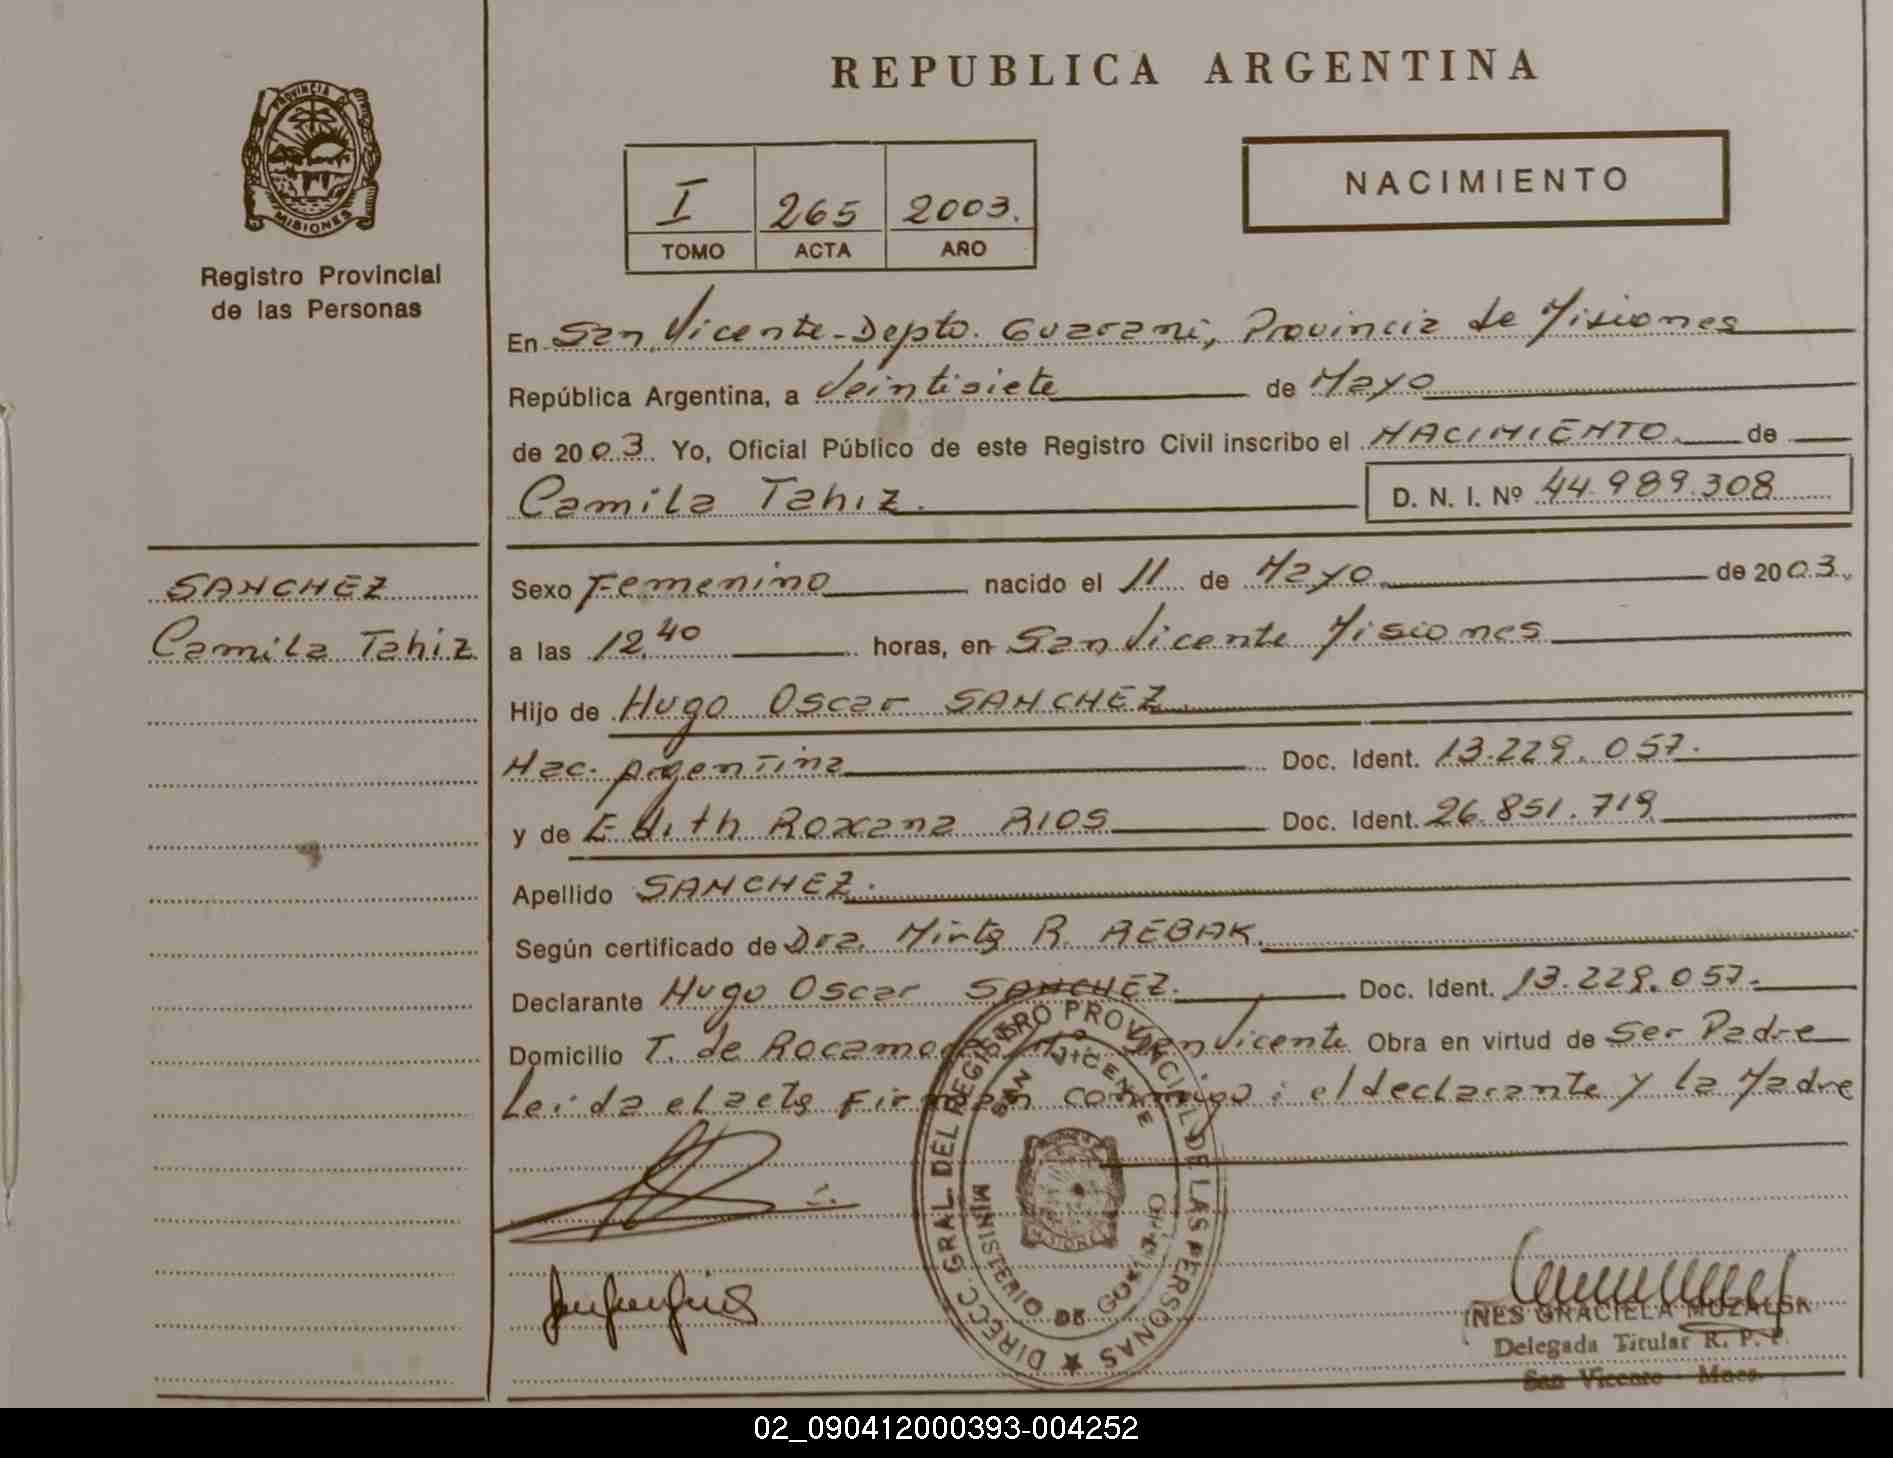 REPUBLICA ARGENTINA
PROVINCIA DE
MISIONES
Registro Provincial
de las Personas
I 265 2003.
TOMO ACTA AÑO
NACIMIENTO
En San Vicente-Depto. Guarani, Provincia de Misiones
República Argentina, a Veintisiete de Mayo
de 2003. Yo, Oficial Público de este Registro Civil inscribo el NACIMIENTO de
Camila Tahiz. D. N. I. Nº 44.989.308
SANCHEZ
Camila Tahiz
Sexo Femenino nacido el 11 de Mayo de 2003.
a las 12.40 horas, en San Vicente Misiones
Hijo de Hugo Oscar SANCHEZ
Nac. Argentina Doc. Ident. 13.229.057.
y de Edith Roxana RIOS Doc. Ident. 26.851.719
Apellido SANCHEZ.
Según certificado de Dra. Mirta R. REBAK.
Declarante Hugo Oscar SANCHEZ. Doc. Ident. 13.229.057.
Domicilio T. de San Vicente Obra en virtud de Ser Padre
Leida el acta Firman conmigo: el declarante y la Madre
DIRECC. GRAL. DEL REGISTRO PROVINCIAL DE LAS PERSONAS
SAN VICENTE
MINISTERIO DE GOBIERNO
MISIONES
INES GRACIELA
Delegada Titular R. P. P.
San Vicente - Mnes.
02_090412000393-004252